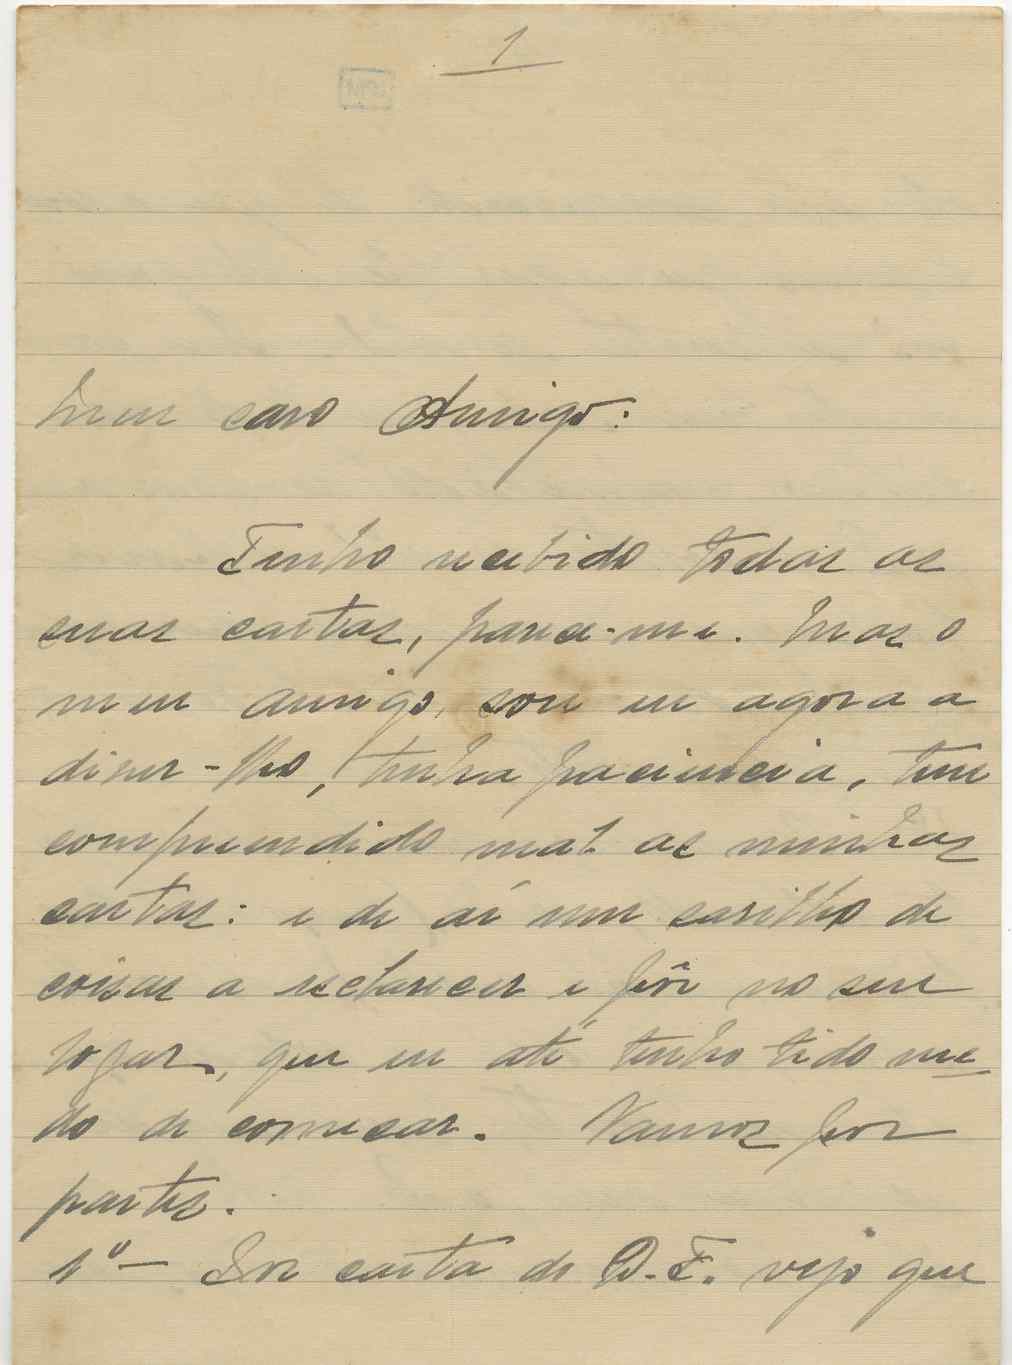 1
Meu caro Amigo:
Tenho recebido todas as
suas cartas, parece-me. Mas o
meu amigo, sou eu agora a
dizer-lho, tenha paciencia, tem
compreendido mal as minhas
cartas: e de aí um sarilho de
coisas a esclarecer e pôr no seu
logar, que eu até tenho tido me
do de começar. Vamos por
partes.
1º — Por carta de D. F. vejo que